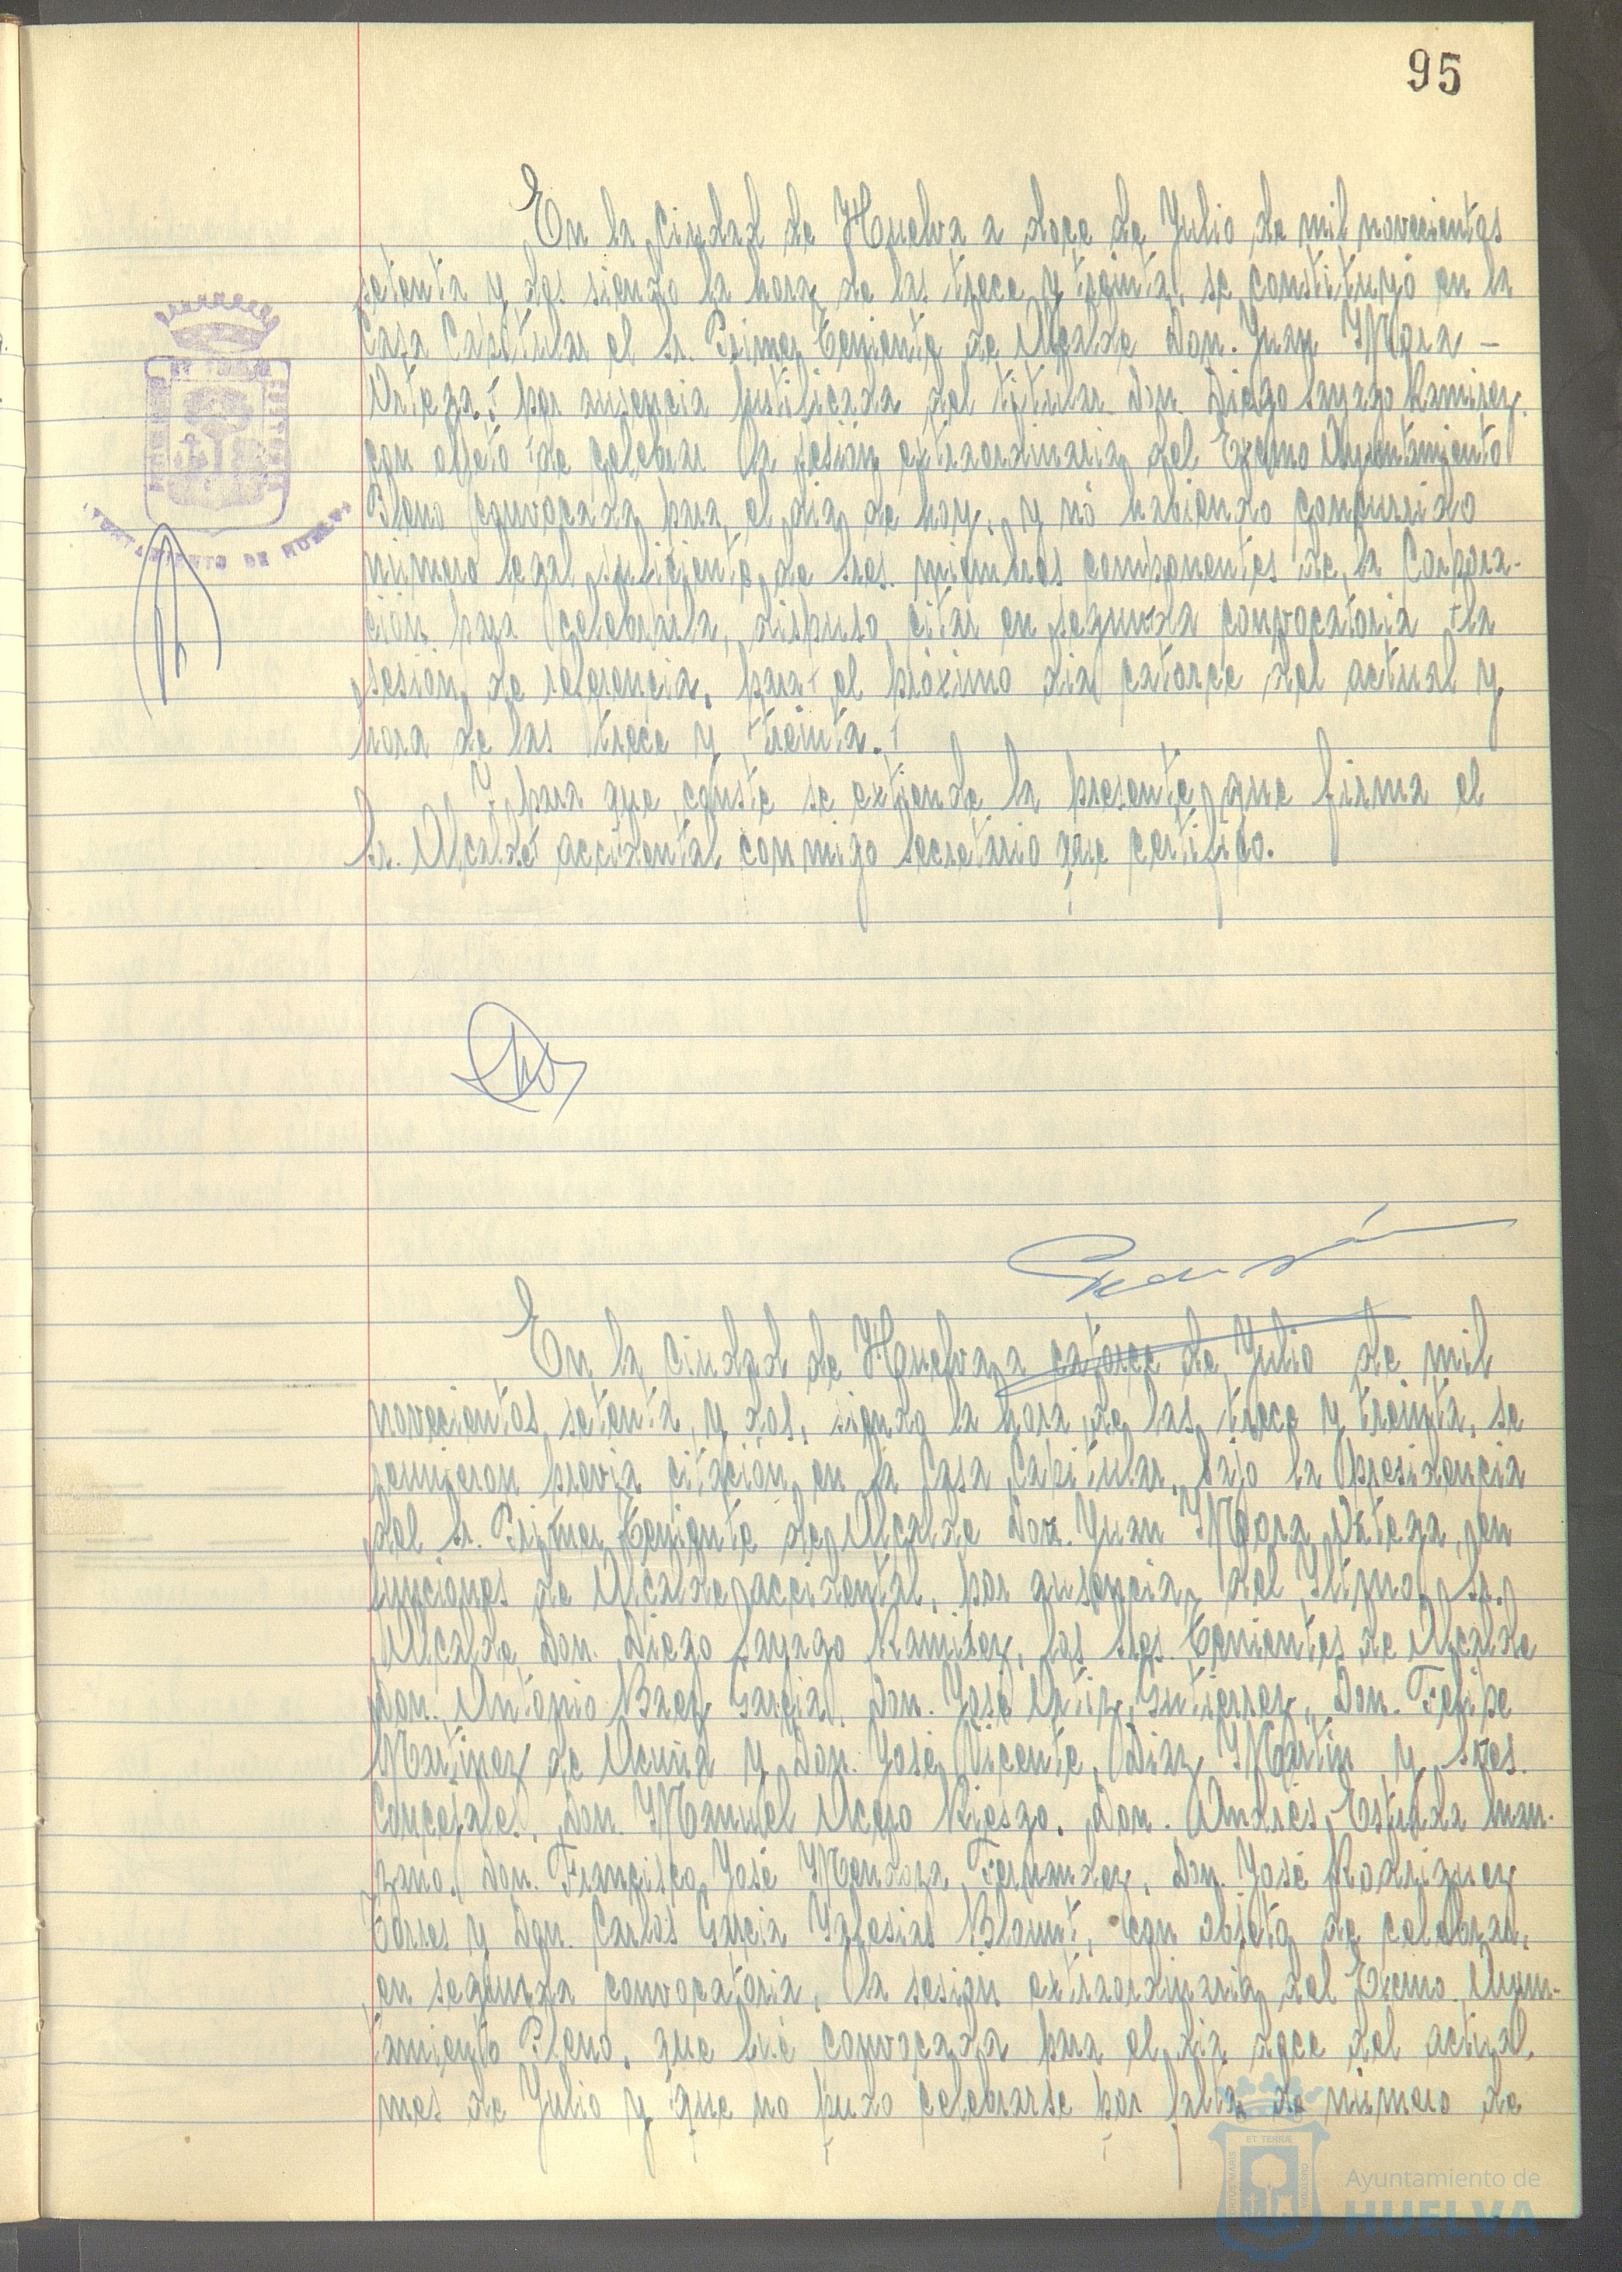 95
En la Ciudad de Huelva a doce de Julio de mil novecientos
setenta y dos siendo la hora de las trece y treinta, se constituyó en la
Casa Capitular el Sr. Primer Teniente de Alcalde Don. Juan Mora -
Ortega, por ausencia justificada del titular Don. Diego Sayago Ramirez,
con objeto de celebrar la sesión extraordinaria del Excmo Ayuntamiento
Pleno convocada para el dia de hoy, y nó habiendo concurrido
número legal suficiente de Sres. miembros componentes de la Corpora-
ción para celebrarla, dispuso citar en segunda convocatoria la
sesion, de referencia, para el próximo dia catorce del actual y
hora de las trece y treinta.
Y para que conste se extiende la presente, que firma el
Sr. Alcalde accidental conmigo Secretario que certifico.
AYUNTAMIENTO DE HUELVA
En la Ciudad de Huelva, a catorce de Julio de mil
novecientos setenta y dos, siendo la hora de las trece y treinta, se
reunieron previa citación en la Casa Capitular, bajo la Presidencia
del Sr. Primer Teniente de Alcalde Don. Juan Mora Ortega, en
funciones de Alcalde accidental, por ausencia, del Iltmo. Sr.
Alcalde Don. Diego Sayago Ramirez, los Sres. Tenientes de Alcalde
Don. Antonio Baez Garcia, Don. José Ortiz Gutierrez, Don. Felipe
Martinez de Acuña y Don. José Vicente Diaz Martin y Sres.
Concejales, Don. Manuel Acero Riesgo, Don. Andrés Estrada Man-
zano, Don. Francisco José Mendoza Fernandez, Don. José Rodriguez
Torres y Don. Carlos Garcia Yglesias Blount, con objeto de celebrar,
en segunda convocatoria, la sesion extraordinaria del Excmo. Ayun-
tamiento Pleno, que fué convocada para el dia doce del actual
mes de Julio y que no pudo celebrarse por falta de número de
ET TERRÆ
Ayuntamiento de
HUELVA